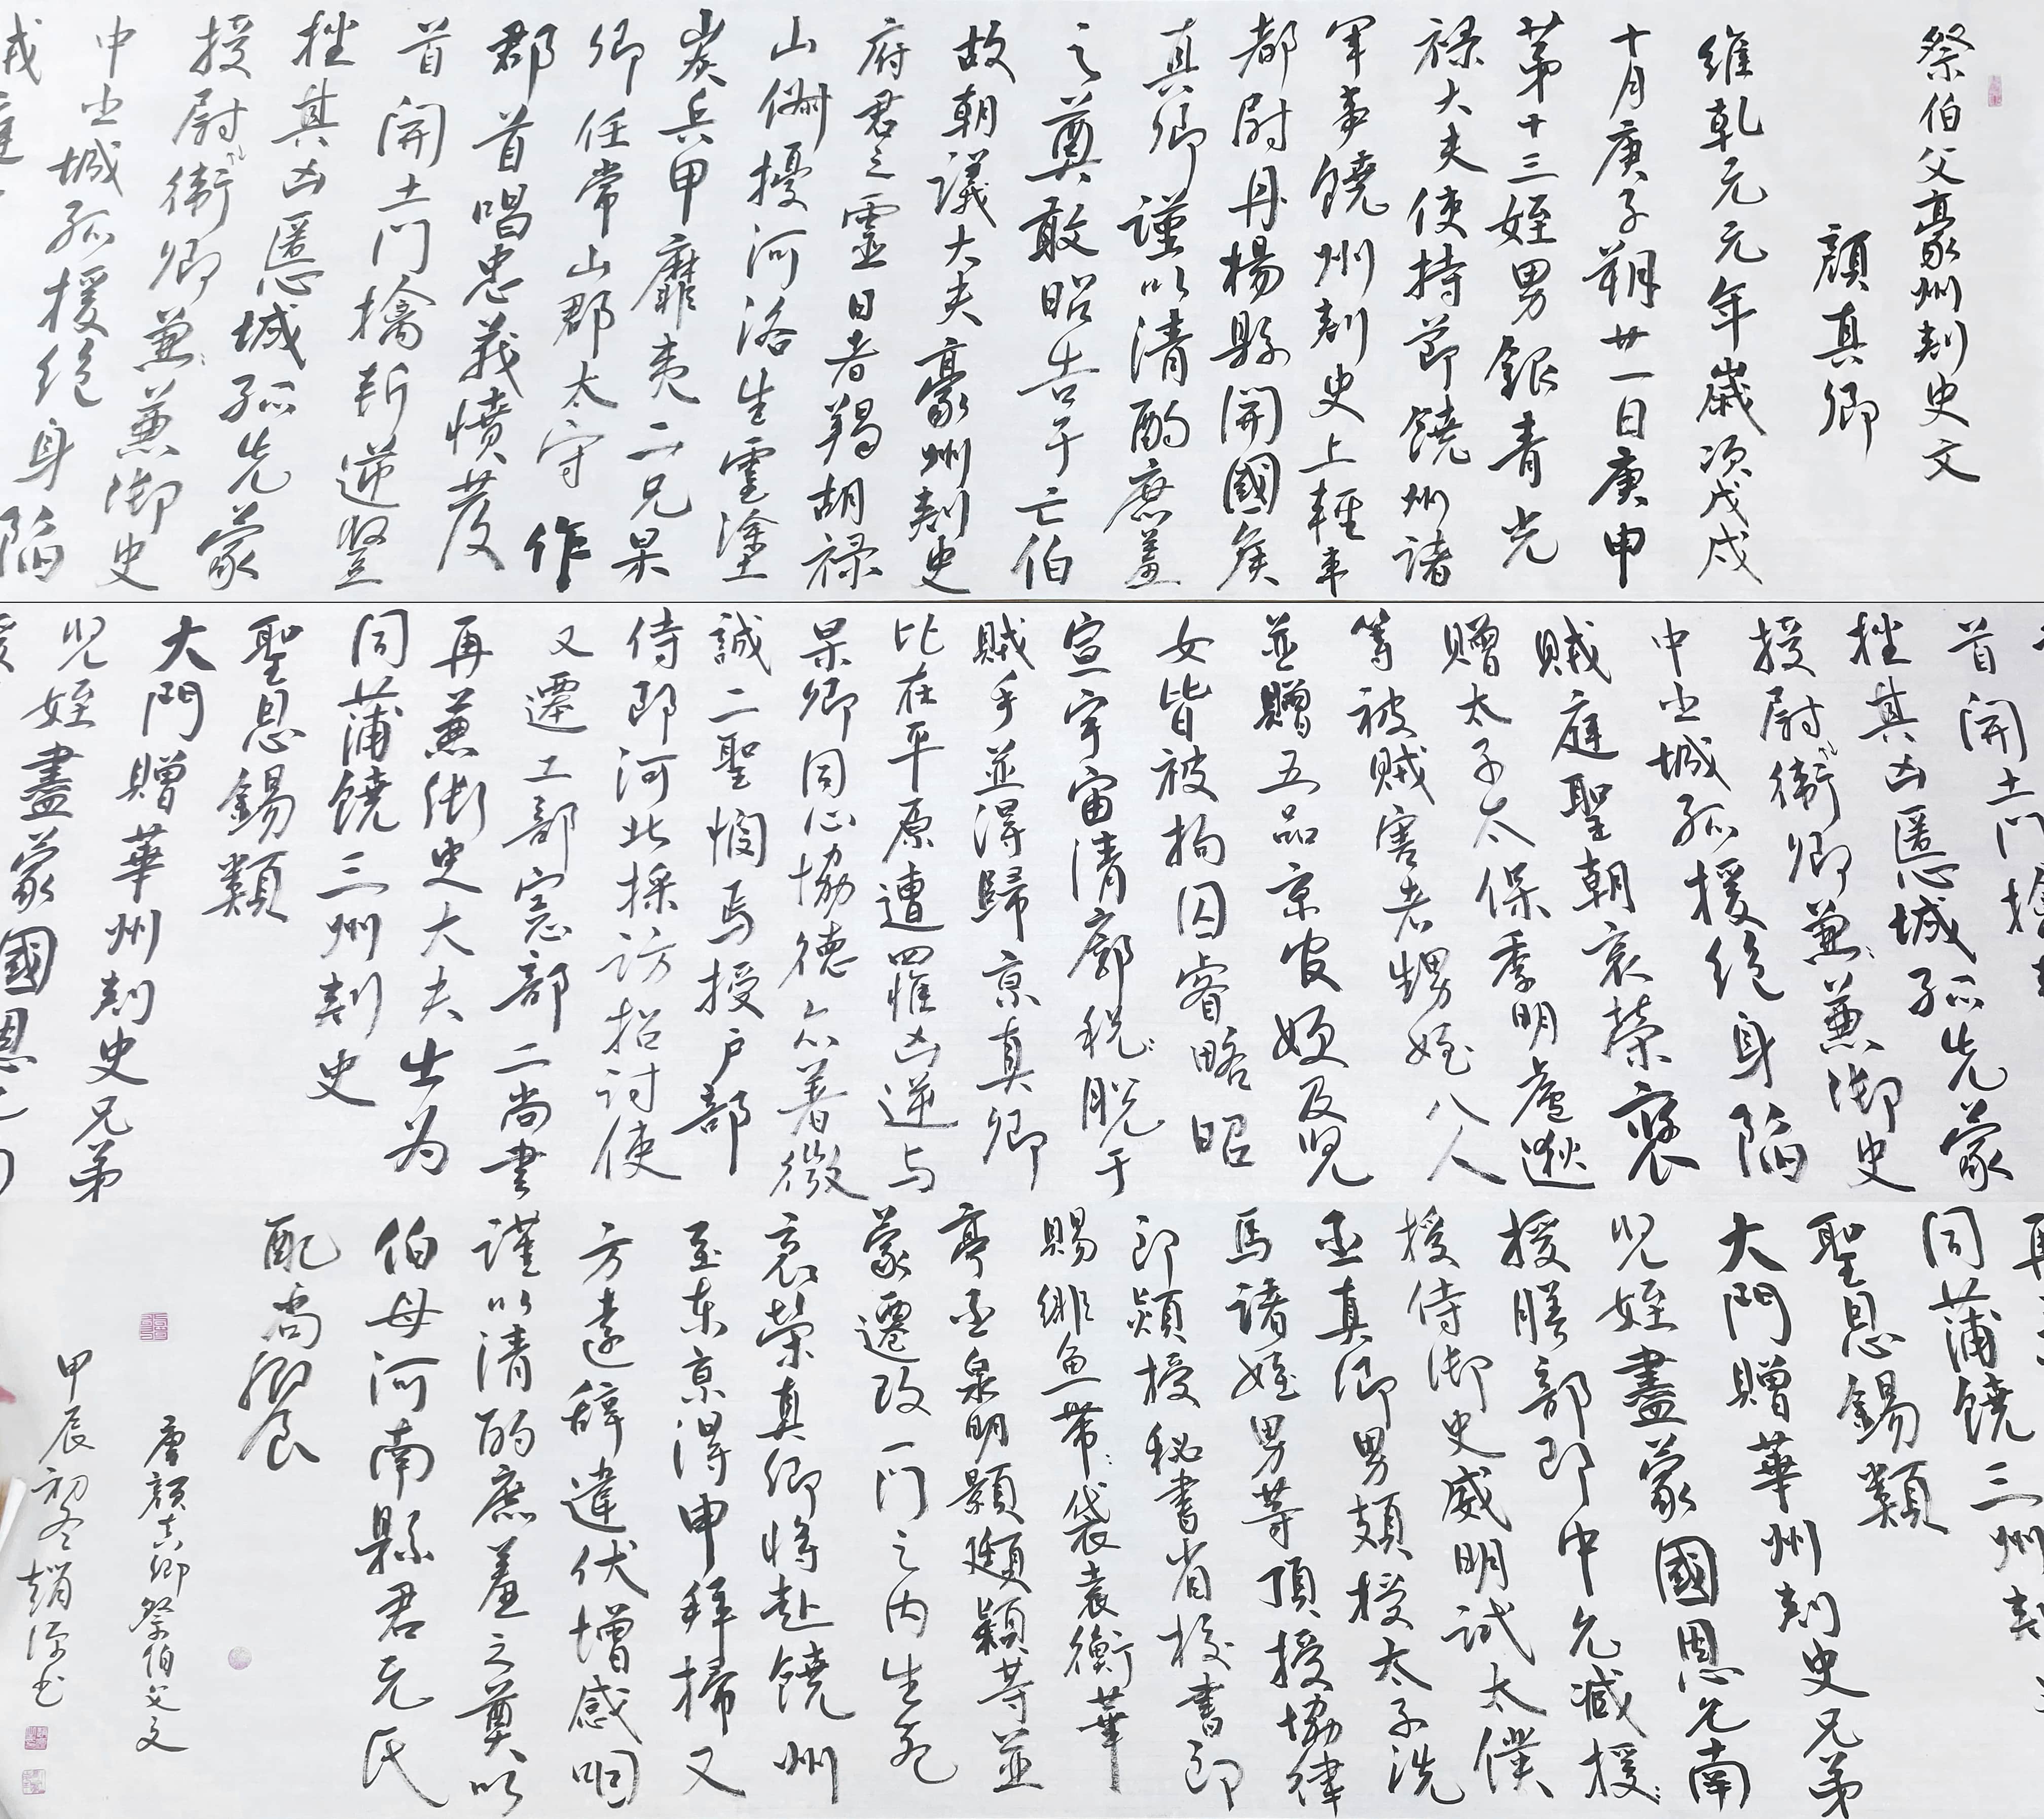 祭伯父豪州刺史文
顏真卿
維乾元元年歲次戊戌
十月庚子朔廿一日庚申
第十三姪男銀青光
祿大夫使持節饒州諸
軍事饒州刺史上輕車
都尉丹楊縣開國侯
真卿謹以清酌庶羞
之奠敢昭告于亡伯
故朝議大夫豪州刺史
府君之靈日者羯胡祿
山俶擾河洛生靈塗
炭兵甲靡夷二兄杲
卿任常山郡太守作
郡首唱忠義憤發
首開土門擒斬逆豎
挫其凶慝城孤先蒙
授尉衛卿兼兼御史
中丞城孤援絕身陷
賊庭
首開土門擒斬
挫其凶慝城孤先蒙
授尉衛卿兼兼御史
中丞城孤援絕身陷
賊庭聖朝哀榮褒
贈太子太保季明盧逖
等被賊害者甥姪八人
並贈五品京官嫂及兒
女皆被拘囚睿略昭
宣宇宙清廓稅脫于
賊手並得歸京真卿
比在平原遭罹凶逆与
杲卿同心協德亦著微
誠二聖憫焉授戶部
侍郎河北採訪招討使
又遷工部憲部二尚書
再兼御史大夫出为
同蒲饒三州刺史
聖恩錫類
大門贈華州刺史兄弟
兒姪盡蒙國恩允南
同蒲饒三州刺
聖恩錫類
大門贈華州刺史兄弟
兒姪盡蒙國恩允南
授膳部郎中允臧授
授侍御史威明試太僕
丞真卿男頗授太子洗
馬諸姪男等頂授協律
郎熲授秘書省校書郎
賜緋魚帶袋袁衡華
亭丞泉明顥頲潁等並
蒙遷改一門之內生死
哀榮真卿將赴饒州
至東京得申拜掃又
方遠辭違伏增感咽
謹以清酌庶羞之奠以
伯母河南縣君元氏
配尚饗
唐顏真卿祭伯父文
甲辰初冬趙深书